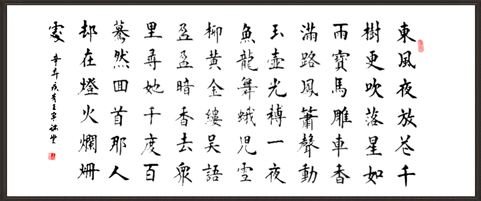 東風夜放花千
樹更吹落星如
雨寶馬雕車香
滿路鳳簫聲動
玉壺光轉一夜
魚龍舞蛾児雪
柳黃金縷吴語
盈盈暗香去衆
里尋她千度百
驀然回首那人
却在燈火爛珊
處 辛弃疾